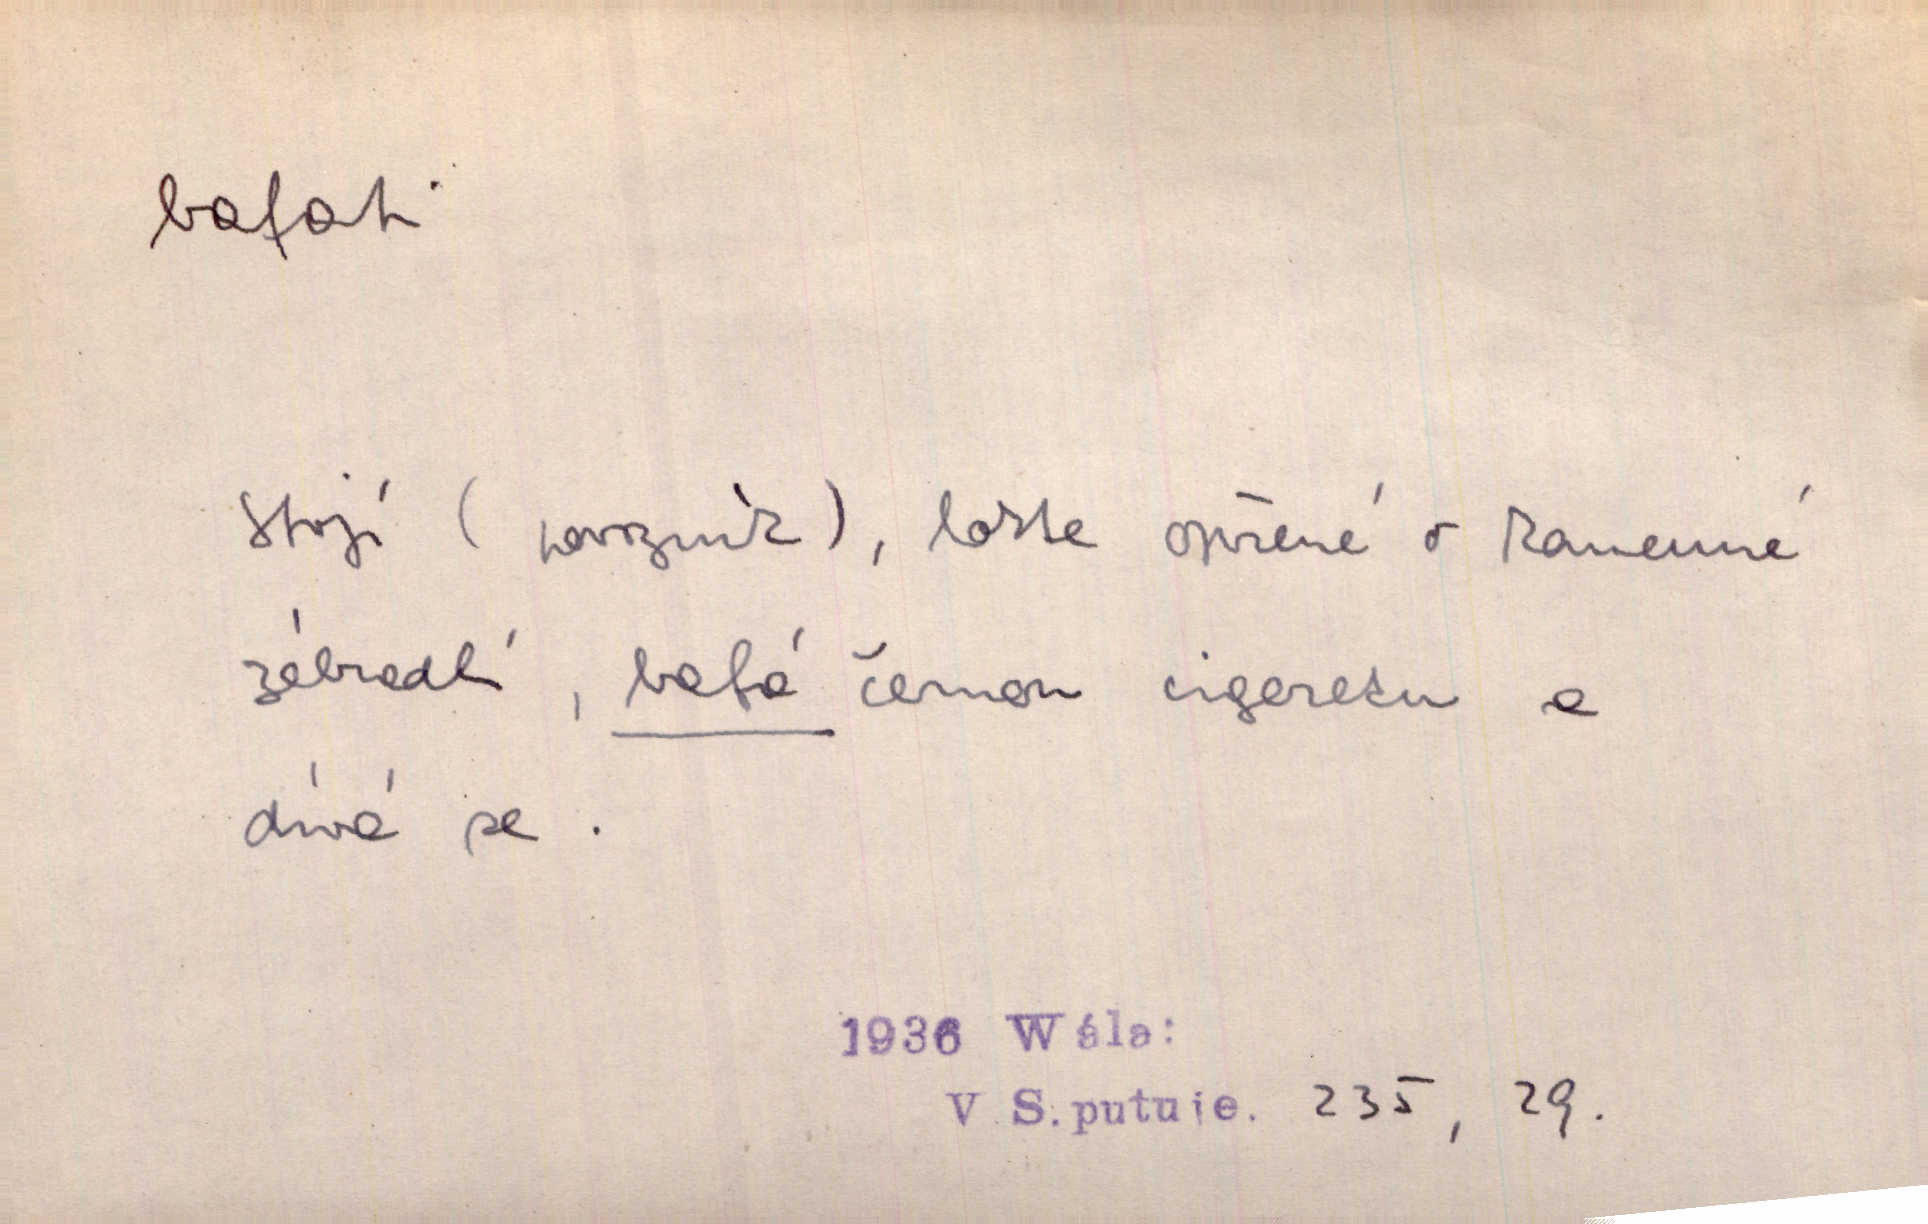 bafati
Stojí (povozník), lokte opřené o kamenné
zábradlí, bafá černou cigaretu a
dívá se.
1936 Wála:
V S.putuje. 235, 29.